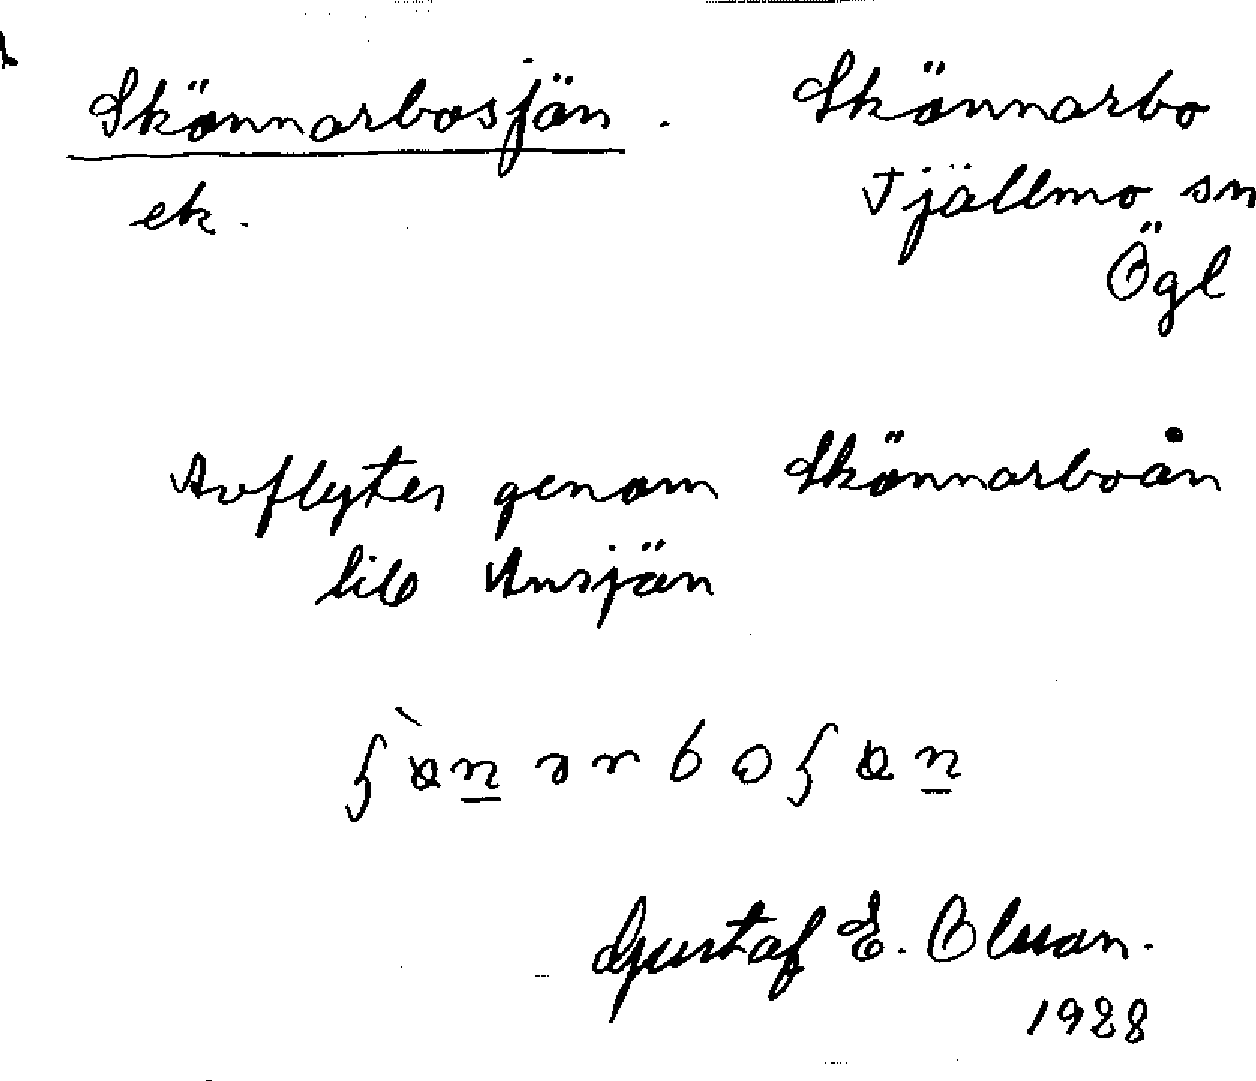 Skönnarbosjön. Skönnarbo
ek. Tjällmo sn
Ögl
Avflyter genom Skönnarboån
till Ansjön
Gustaf E. Olsson.
1928